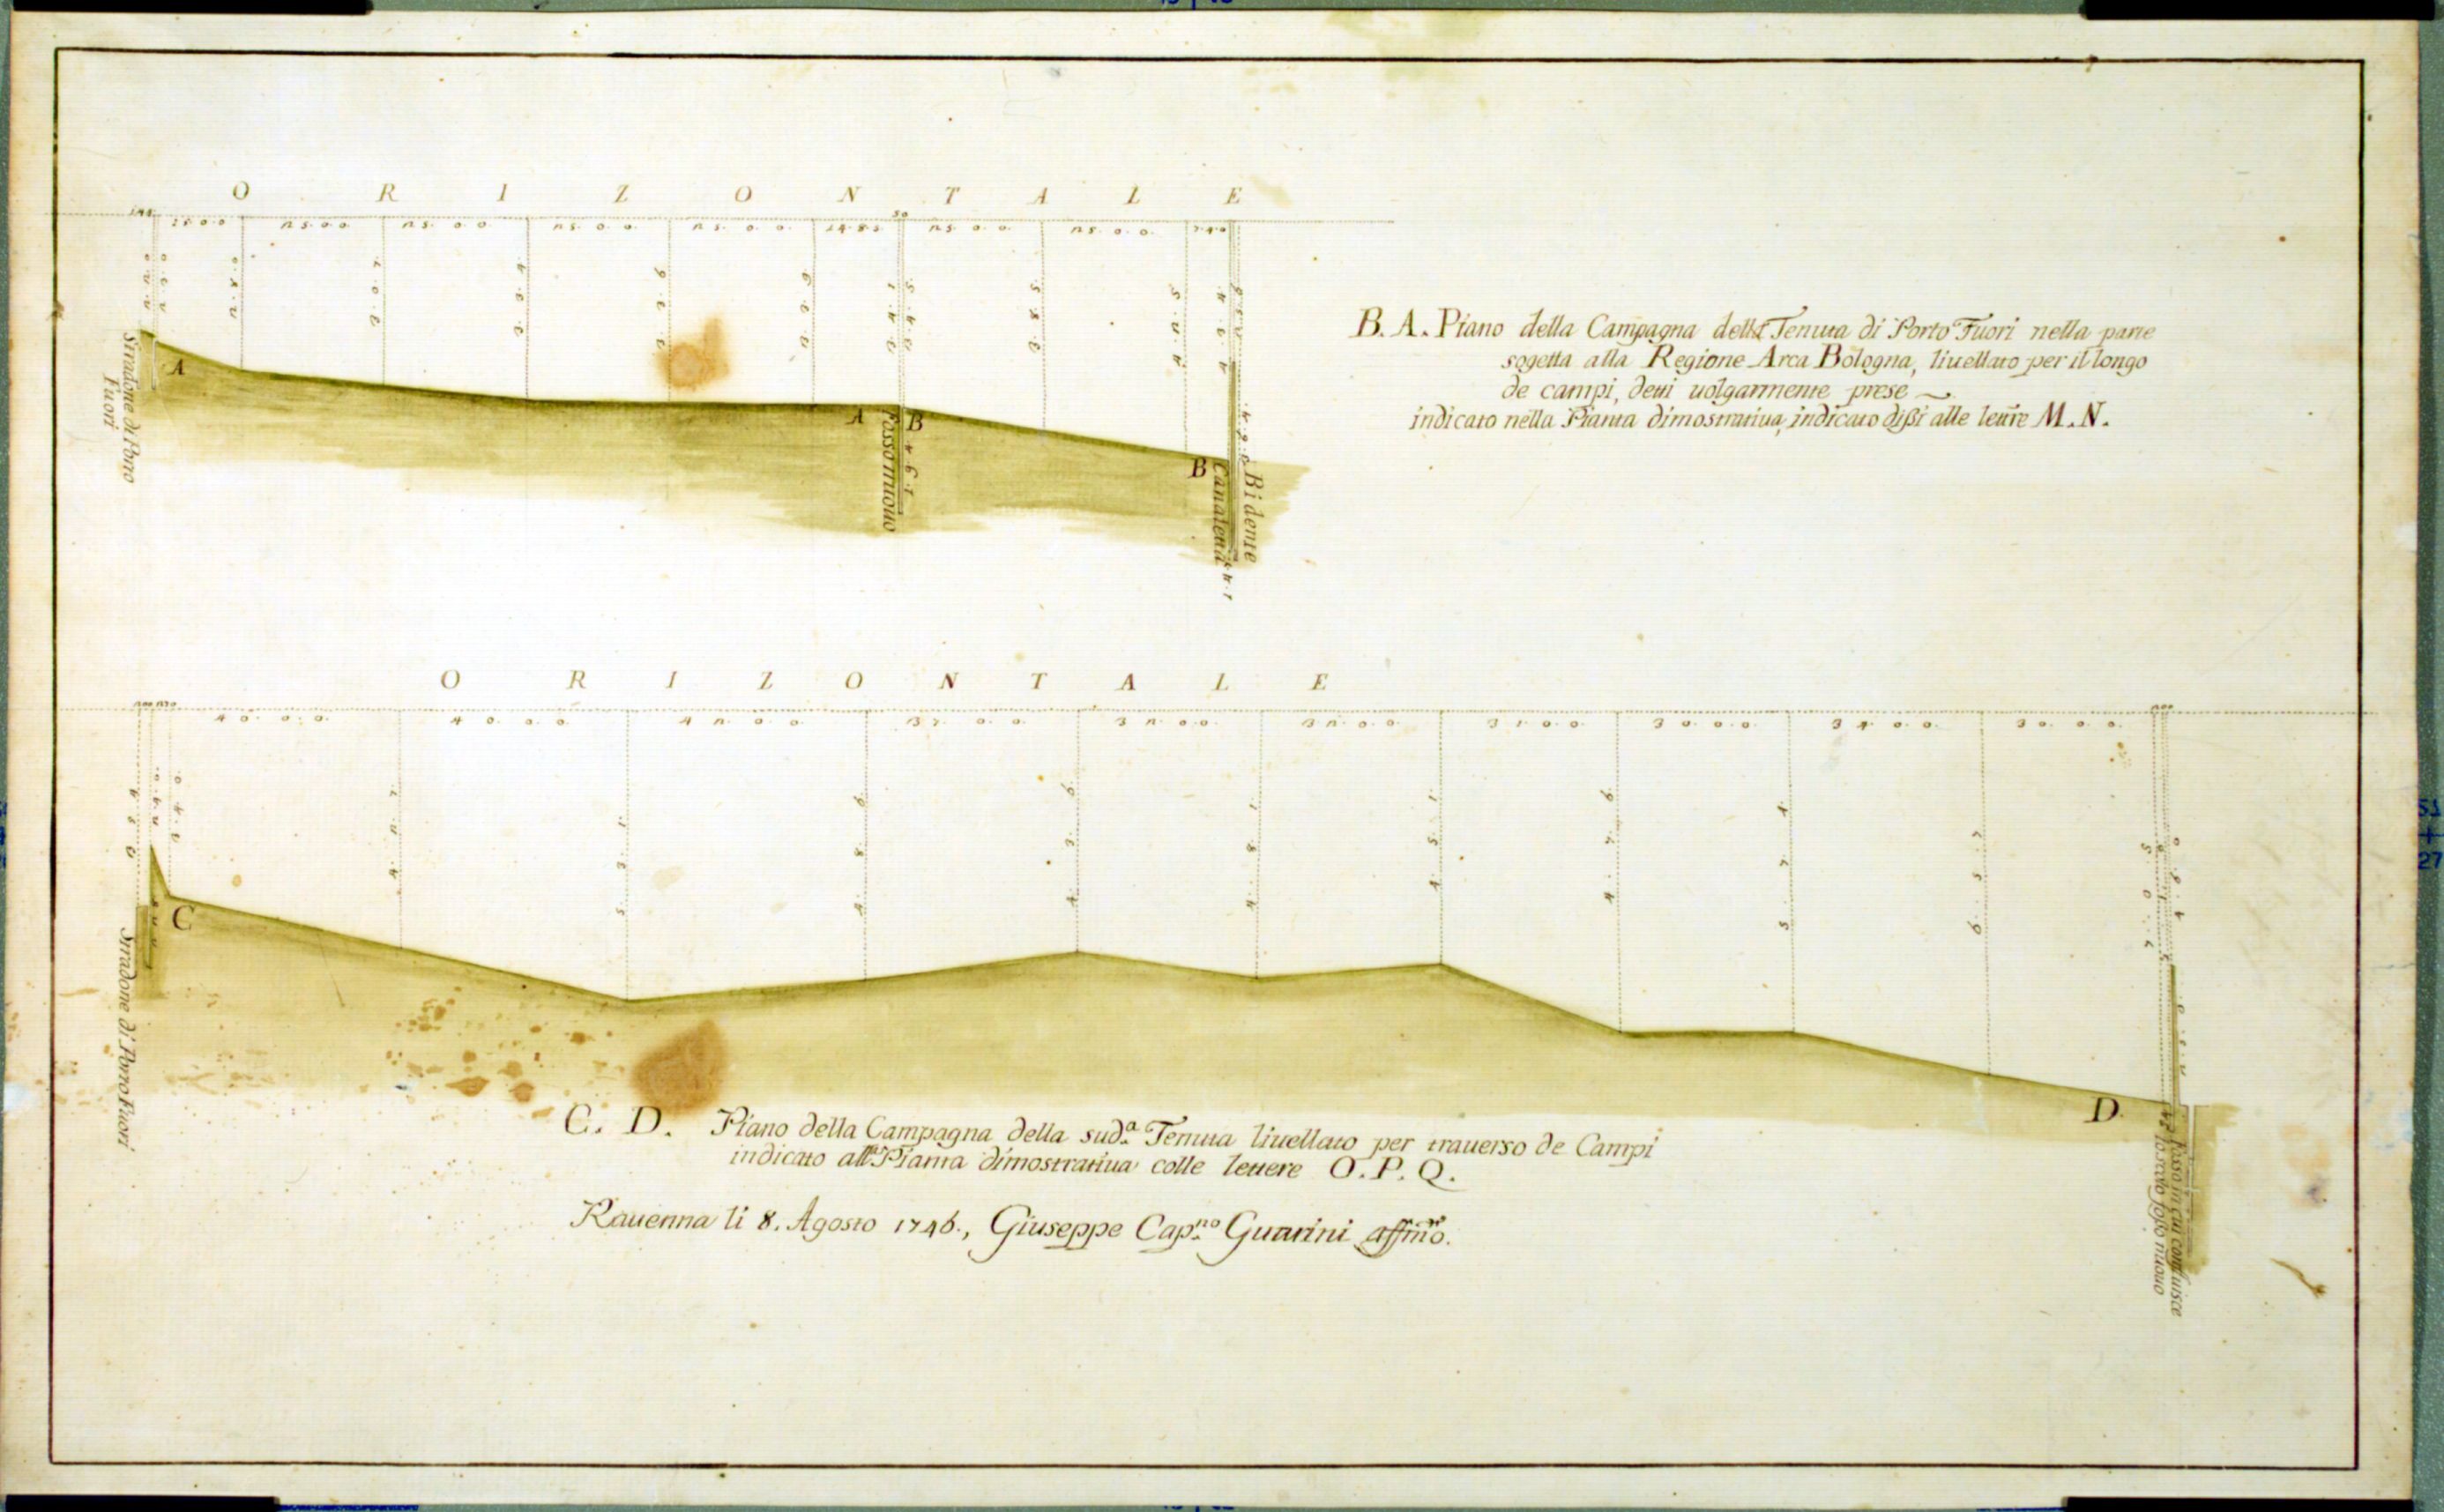 O R I Z O N T A L E
25. 0. 0 25. 0. 0 25. 0. 0 25. 0. 0 25. 0. 0 25. 0. 0 25. 0. 0
50
2. 8. 0
3. 0. 7
3. 3. 4
3. 3. 6
3. 3. 6
3. 4. 1
3. 4. 5
3. 8. 5
4. 2. 5
Stradone di Porto
Fuori
A
A
B
Fosso nuouo
B
Canaletta
Bidente
B. A. Piano della Campagna della Tenuta di Porto Fuori nella parte
sogetta alla Regione Arca Bologna, liuellato per il longo
de campi, detti uolgarmente prese
indicato nella Pianta dimostratiua, indicato dissi alle lettre M. N.
O R I Z O N T A L E
40. 0. 0. 40. 0. 0 42. 0. 0 37. 0. 0 32. 0. 0 32. 0. 0 31. 0. 0 30. 0. 0 34. 0. 0 30. 0. 0
3. 4. 0
4. 2. 7
5. 3. 1
4. 8. 6
4. 3. 6
4. 8. 1
4. 5. 1
4. 7. 6
5. 7. 4
6. 5. 7
7. 0. 5
C
Stradone di Porto Fuori
D
Fosso in cui confluisce
lo scolo fosso nuouo
C. D. Piano della Campagna della sud.a Tenuta liuellato per trauerso de Campi
indicato alla Pianta dimostratiua colle lettere O. P. Q.
Rauenna li 8. Agosto 1746., Giuseppe Cap.no Guarini affmo.